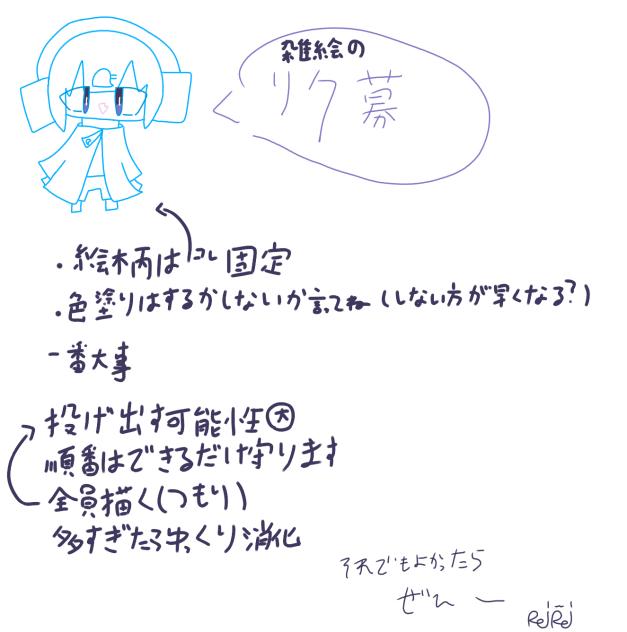 雑絵の
リク募
・絵木丙はコレ固定
・色塗りはするかしないか言ってね(しない方が早くなる?)
一番大事
投げ出す可能性大
順番はできるだけ守ります
全員描く(つもり)
多すぎたらゆっくり消化
それでもよかったら
ぜひー
RejRej